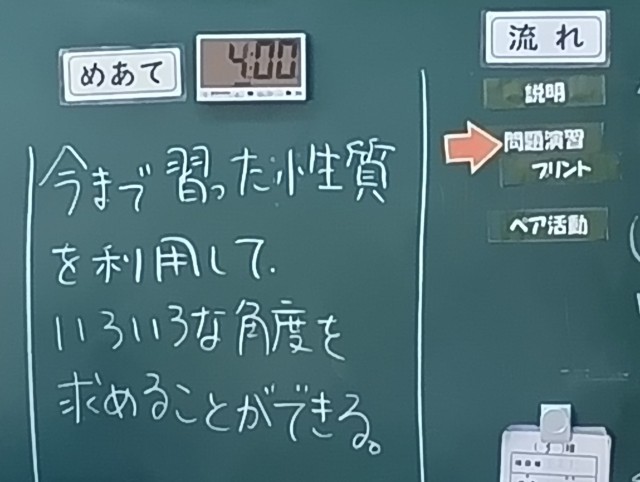 めあて
4:00
今まで習った性質
を利用して、
いろいろな角度を
求めることができる。
流れ
説明
問題演習
プリント
ペア活動